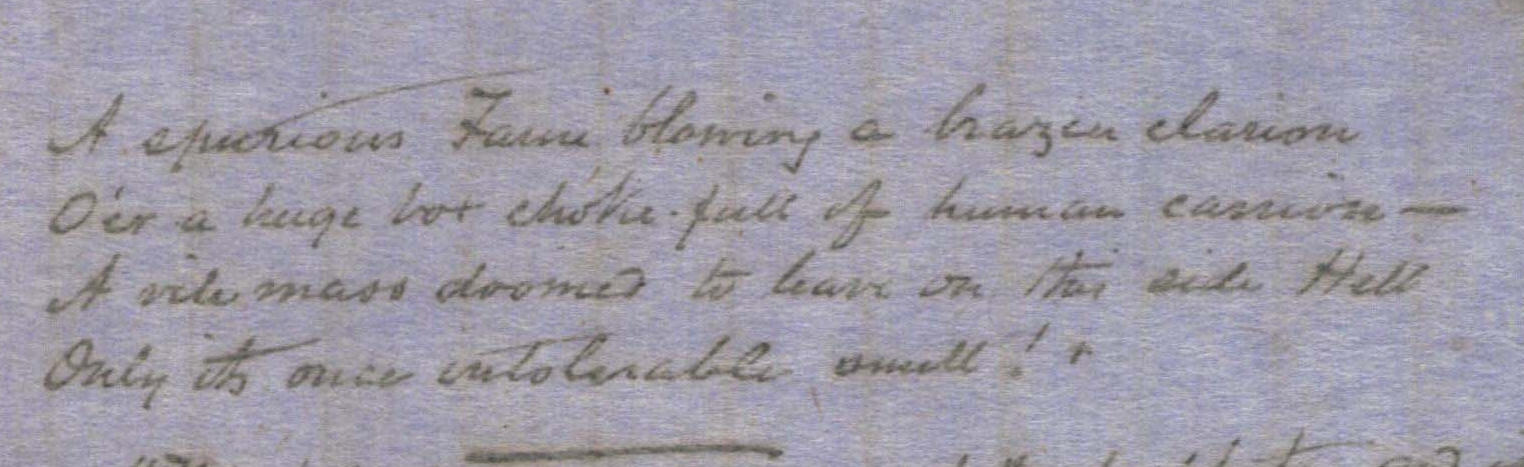 A spurious Fame blowing a brazen clarion
O'er a huge box choke-full of human carrion—
A vile mass doomed to leave on this side Hell
Only its once intolerable smell! +